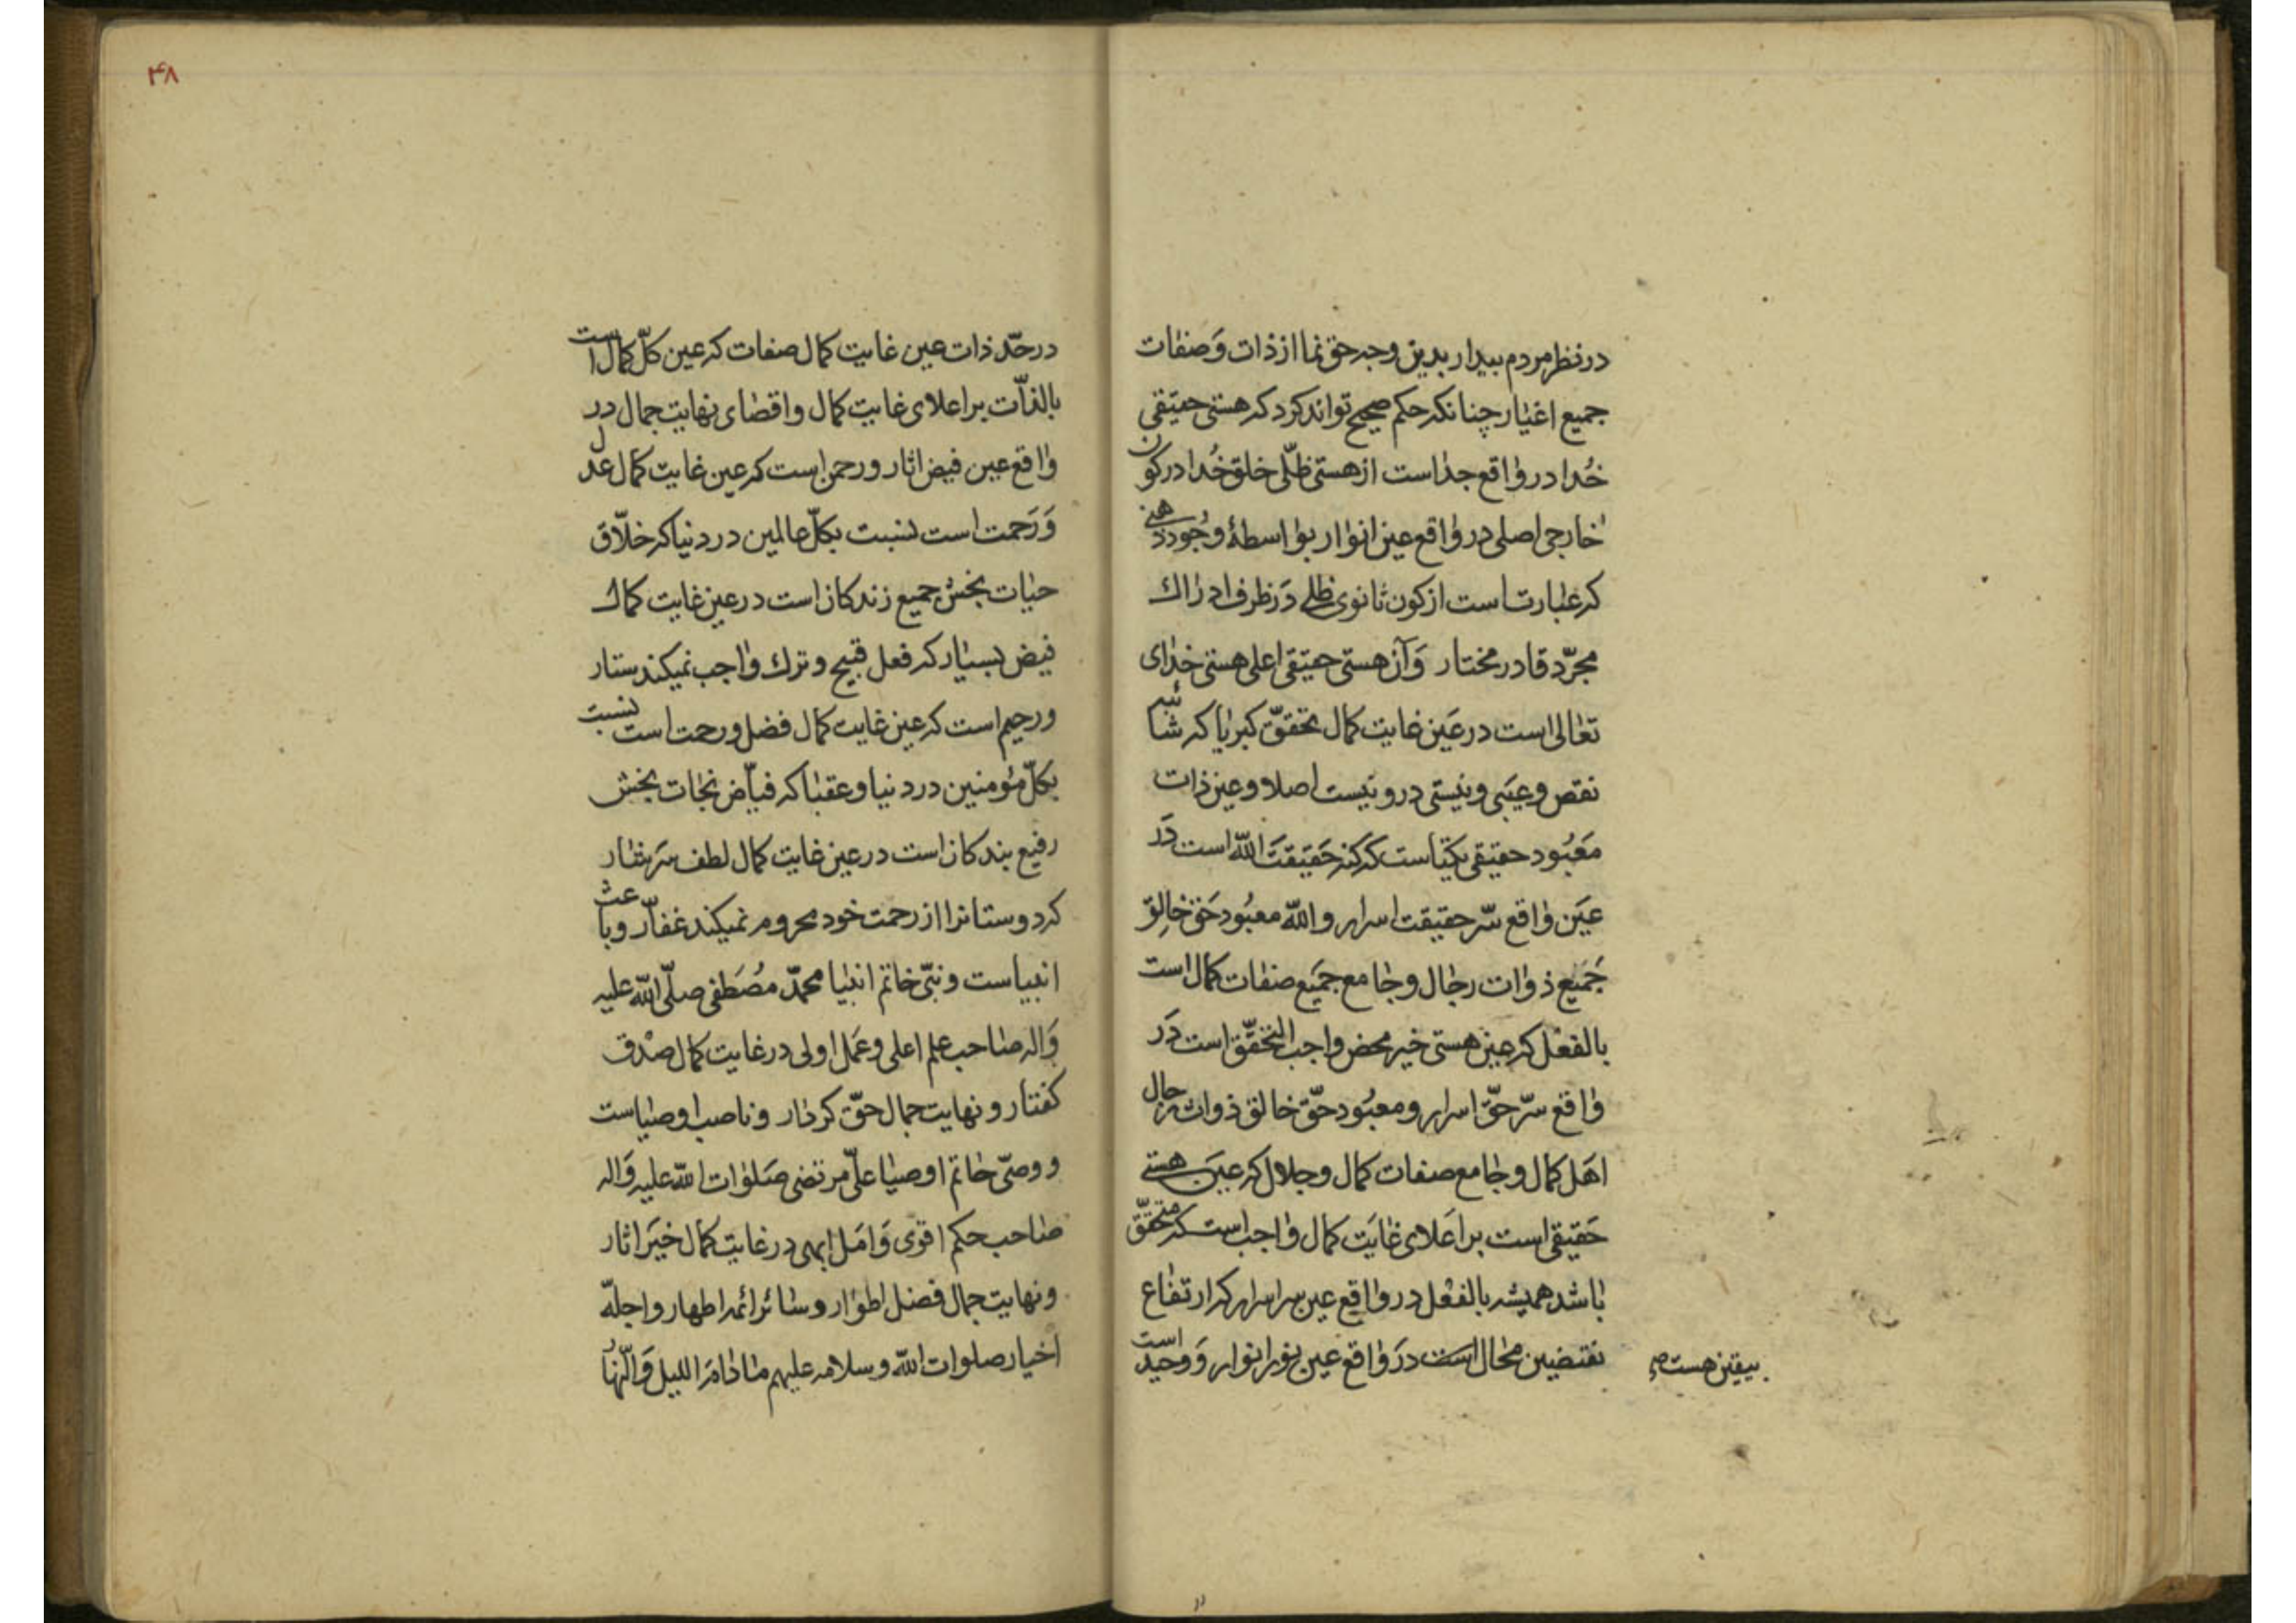 در نظر مردم بیدار بدین وجه حق نما از ذات وَ صفات
جمیع اغیار چنانکه حکم صحیح تواند کرد که هستی حقیقی
خُدا در واقع جداست از هستی ظلّی خلق خُدا در کون
خارجی اصلی در واقع عین انوار بواسطهٔ وجُود ذهنی
که عبارتست از کون ثانوی ظلی دَر ظرف ادراک
مجرّد قادر مختار وَ آن هستی حقیقی اعلی هستی خدای
تعالی است در عَین غایت کمال تحقّق کبریا که شائبه
نقص و عیبی و نیستی در و نیست اصلا و عین ذات
مَعبُود حقیقی یکتاست که کنه حَقیقتَ اللّه است دَر
عَین واقع سّر حقیقت اسرار و اللّه معبُود حَق خالِق
جَمیع ذوات رجال و جامع جمَیع صفات کمال است
بالفعْل که عین هستی خیر محض واجب التحقّق است دَر
واقع سرّ حقّ اسرار و معبُود حقّ خالق ذوات رجال
اهَل کمال و جامع صفات کمال و جلال که عَین هستی
حَقیقی است بر اَعلای غایَت کمال واجب است که متحقّق
باشد همیشه بالفعْل در واقِع عین سر اسرار که ارتفاع
نقتضیین محال است دَر واقع عین نور انوار وَ وحید است
بیقین هست صح
۴۸
در حدّ ذات عین غایت کمال صفات که عین کلّ کمال است
بالذّات بر اعلای غایت کمال و اقصای نهایت جمال در
واقع عین فیض اثار و رحمن است که عین غایت کمال عدل
وَ رَحمت است نسبت بکلّ عالمین در دنیا که خلّاق
حیات بخش جمیع زندکان است در عین غایت کمال
فیض بسیار که فعل قبیح و ترک واجب نمیکند ستار
و رحیم است که عین غایت کمال فضل و رحمت است نسبت
بکلّ مؤمنین در دنیا و عقبا که فیّاض نجات بخش
رفیع بندکان است در عین غایت کمال لطف سَرشار
که دوستانرا از رحمت خود محروم نمیکند غفّار و باعث
انبیاست و نبیّ خاتم انبیا محمّد مصُطَفی صلّی اللّه علیه
وَاله صاحب علم اعلی و عَمَل اولی در غایت کمال صدْق
کفتار و نهایت جمال حقّ کردار و ناصب اوصیاست
و وصیّ خاتم اوصیا علیّ مرتضی صَلوات اللّه علیه وَاله
صاحب حکم اقوی وَ امَل ابهی در غایت کمال خیَر اثار
و نهایت جمال فضل اطوار و سائر ائمه اطهار و اجلّه
اخیار صلوات اللّه و سلامه علیهم ما دامَ اللیل وَ النّهار